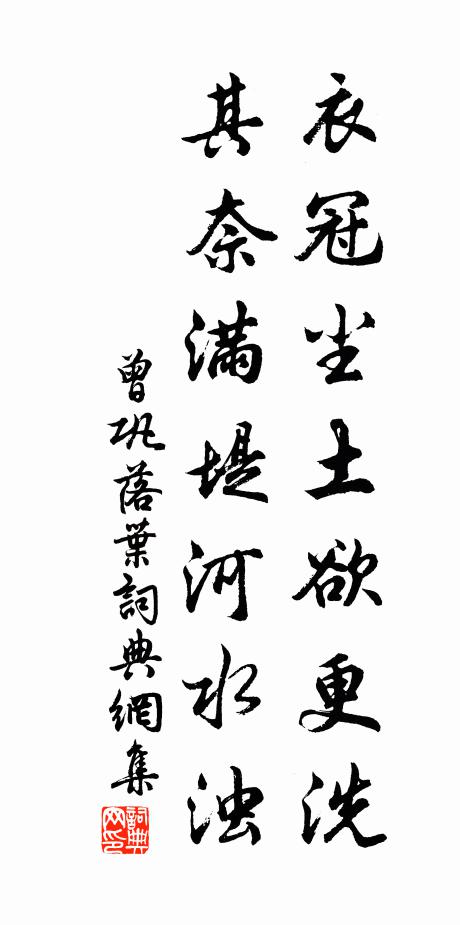 衣冠尘土欲更洗
其奈滿堤河水浊
曾巩落葉詞典網集
詞典网印